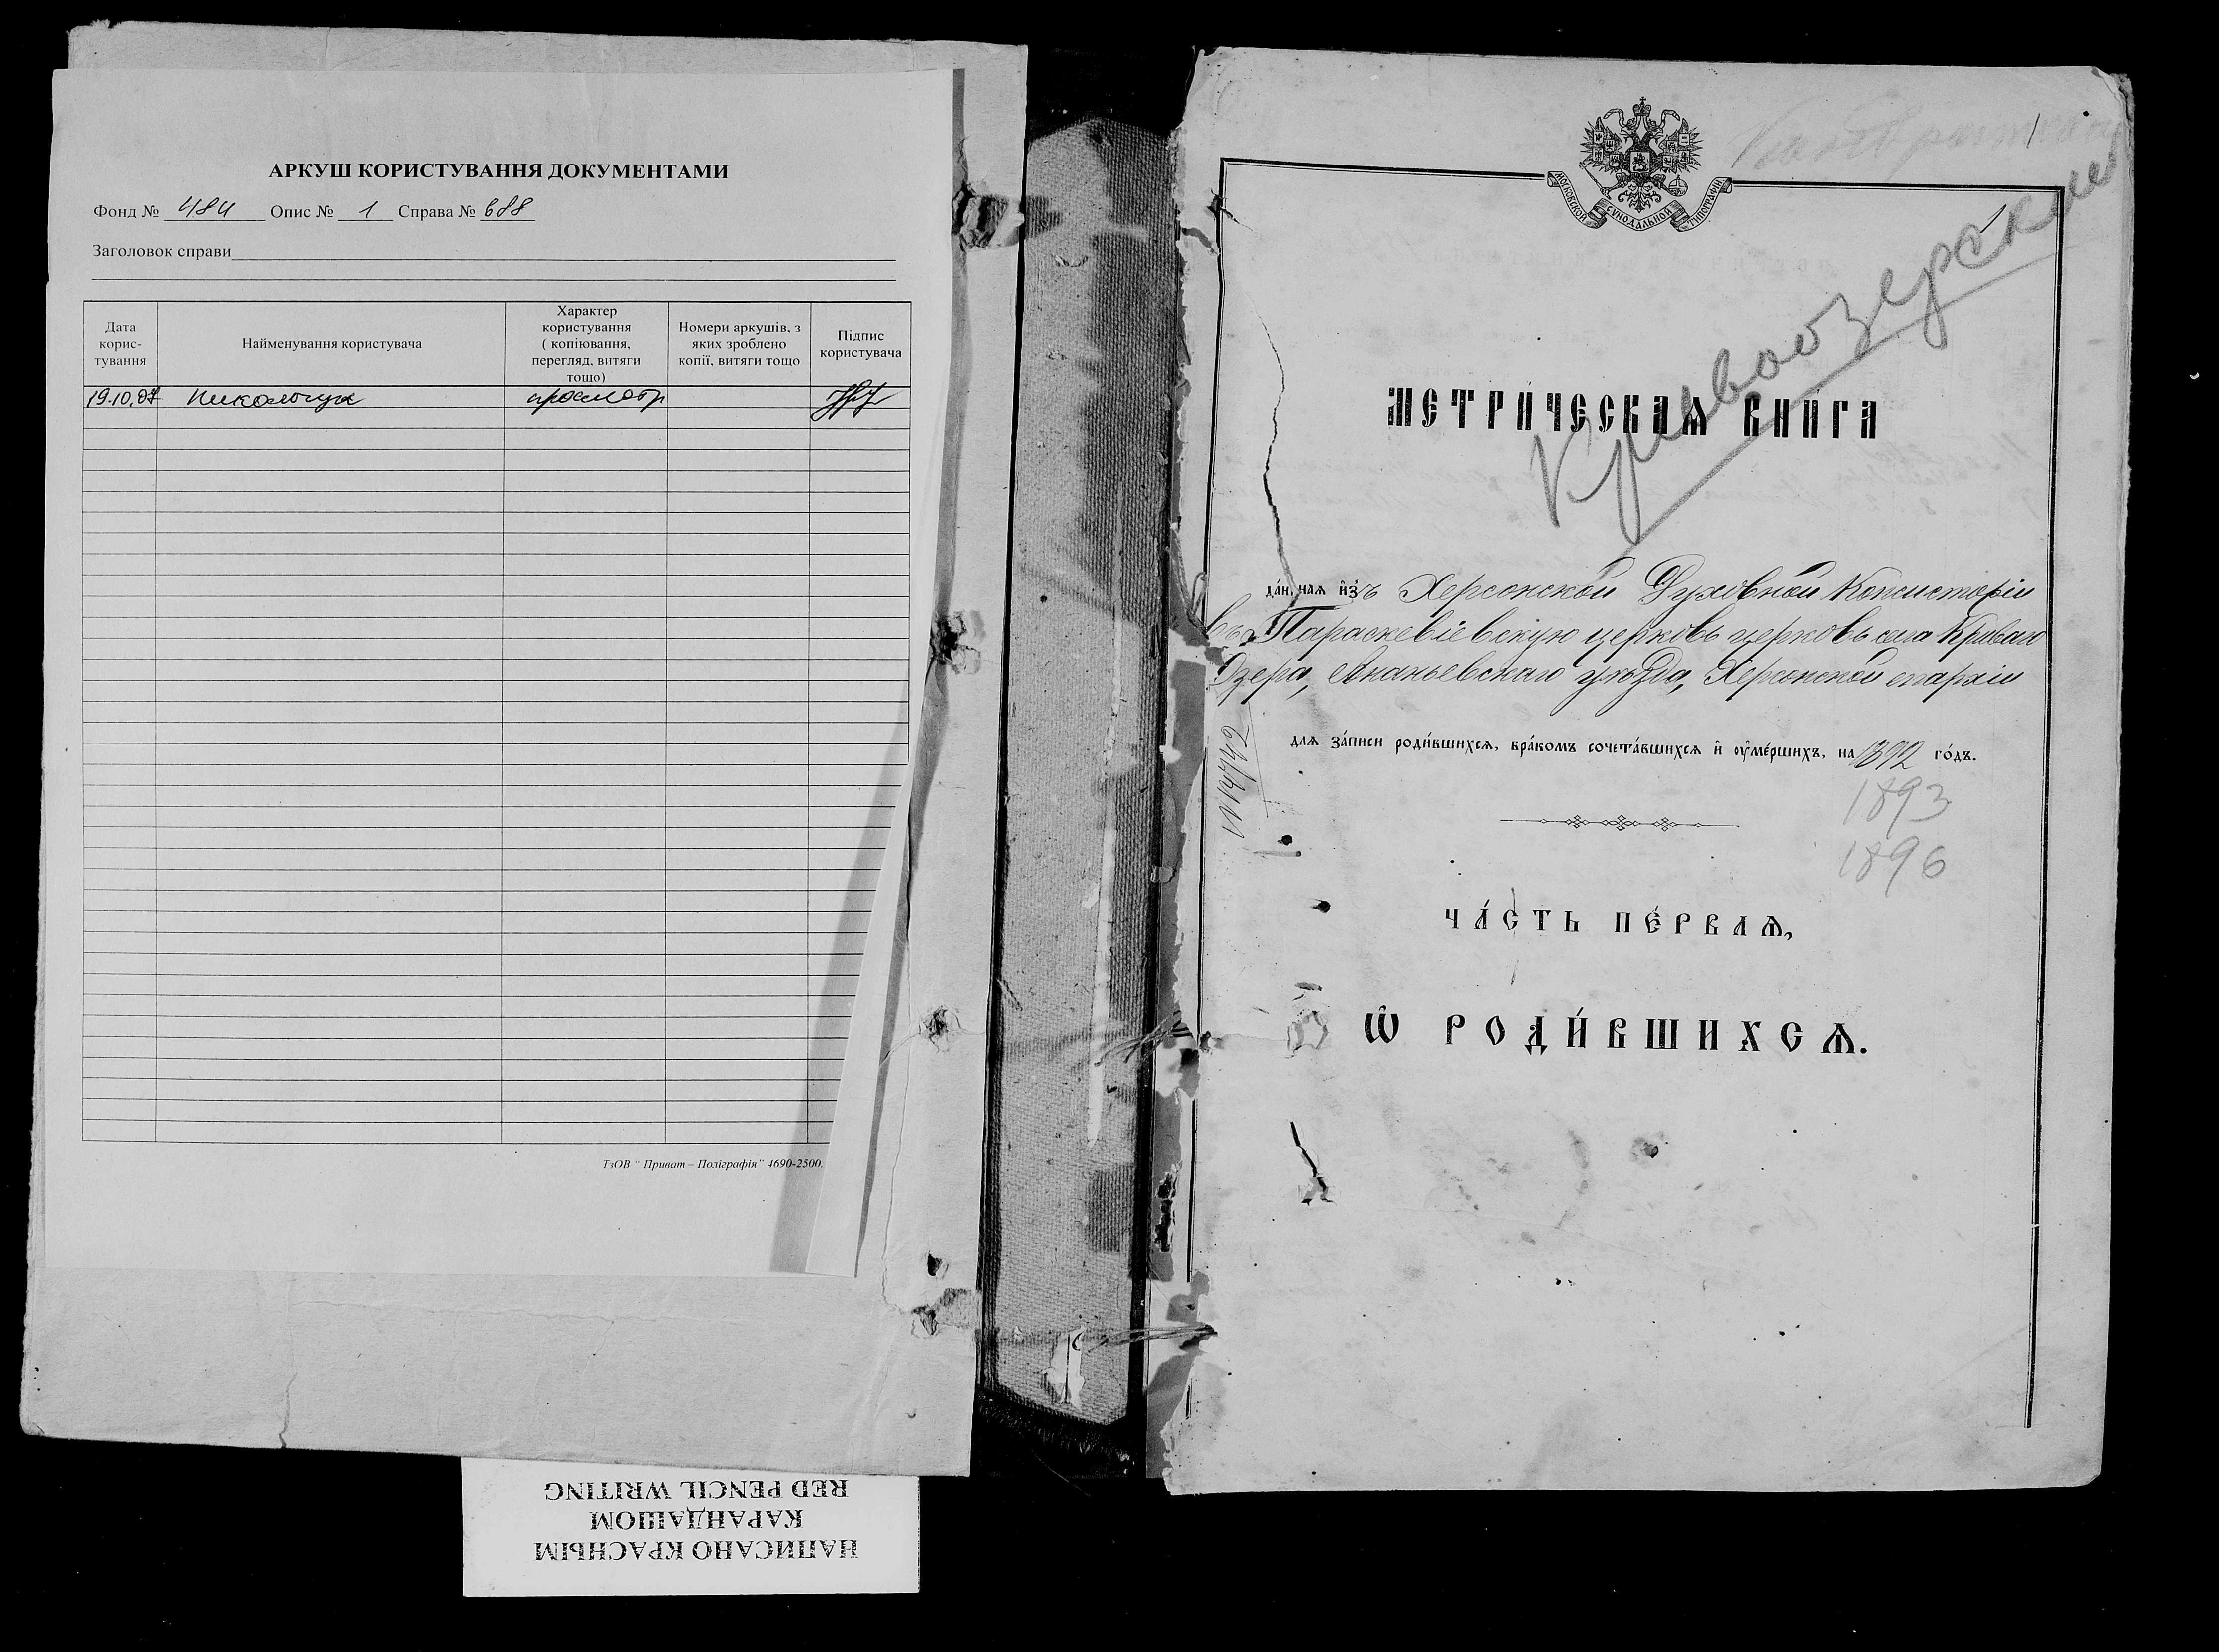 АРКУШ КОРИСТУВАННЯ ДОКУМЕНТАМИ
Фонд № 484 Опис № 1 Справа № 688
Заголовок справи
Дата корис-тування
Найменування користувача
Характер користування ( копіювання, перегляд, витяги тощо)
Номери аркушів, з яких зроблено копії, витяги тощо
Підпис користувача
19.10.07 просмотр
ТзОВ " Приват – Поліграфія" 4690-2500.
НАПИСАНО КРАСНЫМ
КАРАНДАШОМ
RED PENCIL WRITING
1
МОСКОВСКОЙ СѴНОДАЛЬНОЙ ТИПОГРАФІИ
Кривоозерский
МЕТРИ́ЧЕСКАѦ КНИ́ГА
да́ннаѧ и҆з̾ Херсонской Духовной Консисторіи
въ Параскевіевскую церковь церковь села Криваго
Озера, Ананьевскаго уѣзда, Херсонской епархіи
длѧ за́писи роди́вшихсѧ, бра́комъ сочета́вшихсѧ и҆ ᲂу҆ме́ршихъ, на 1892 го́дъ.
1893
1896
№ 14742
ЧА́СТЬ ПЕ́РВАѦ,
Ѡ҆ РОДИ́ВШИХСѦ.